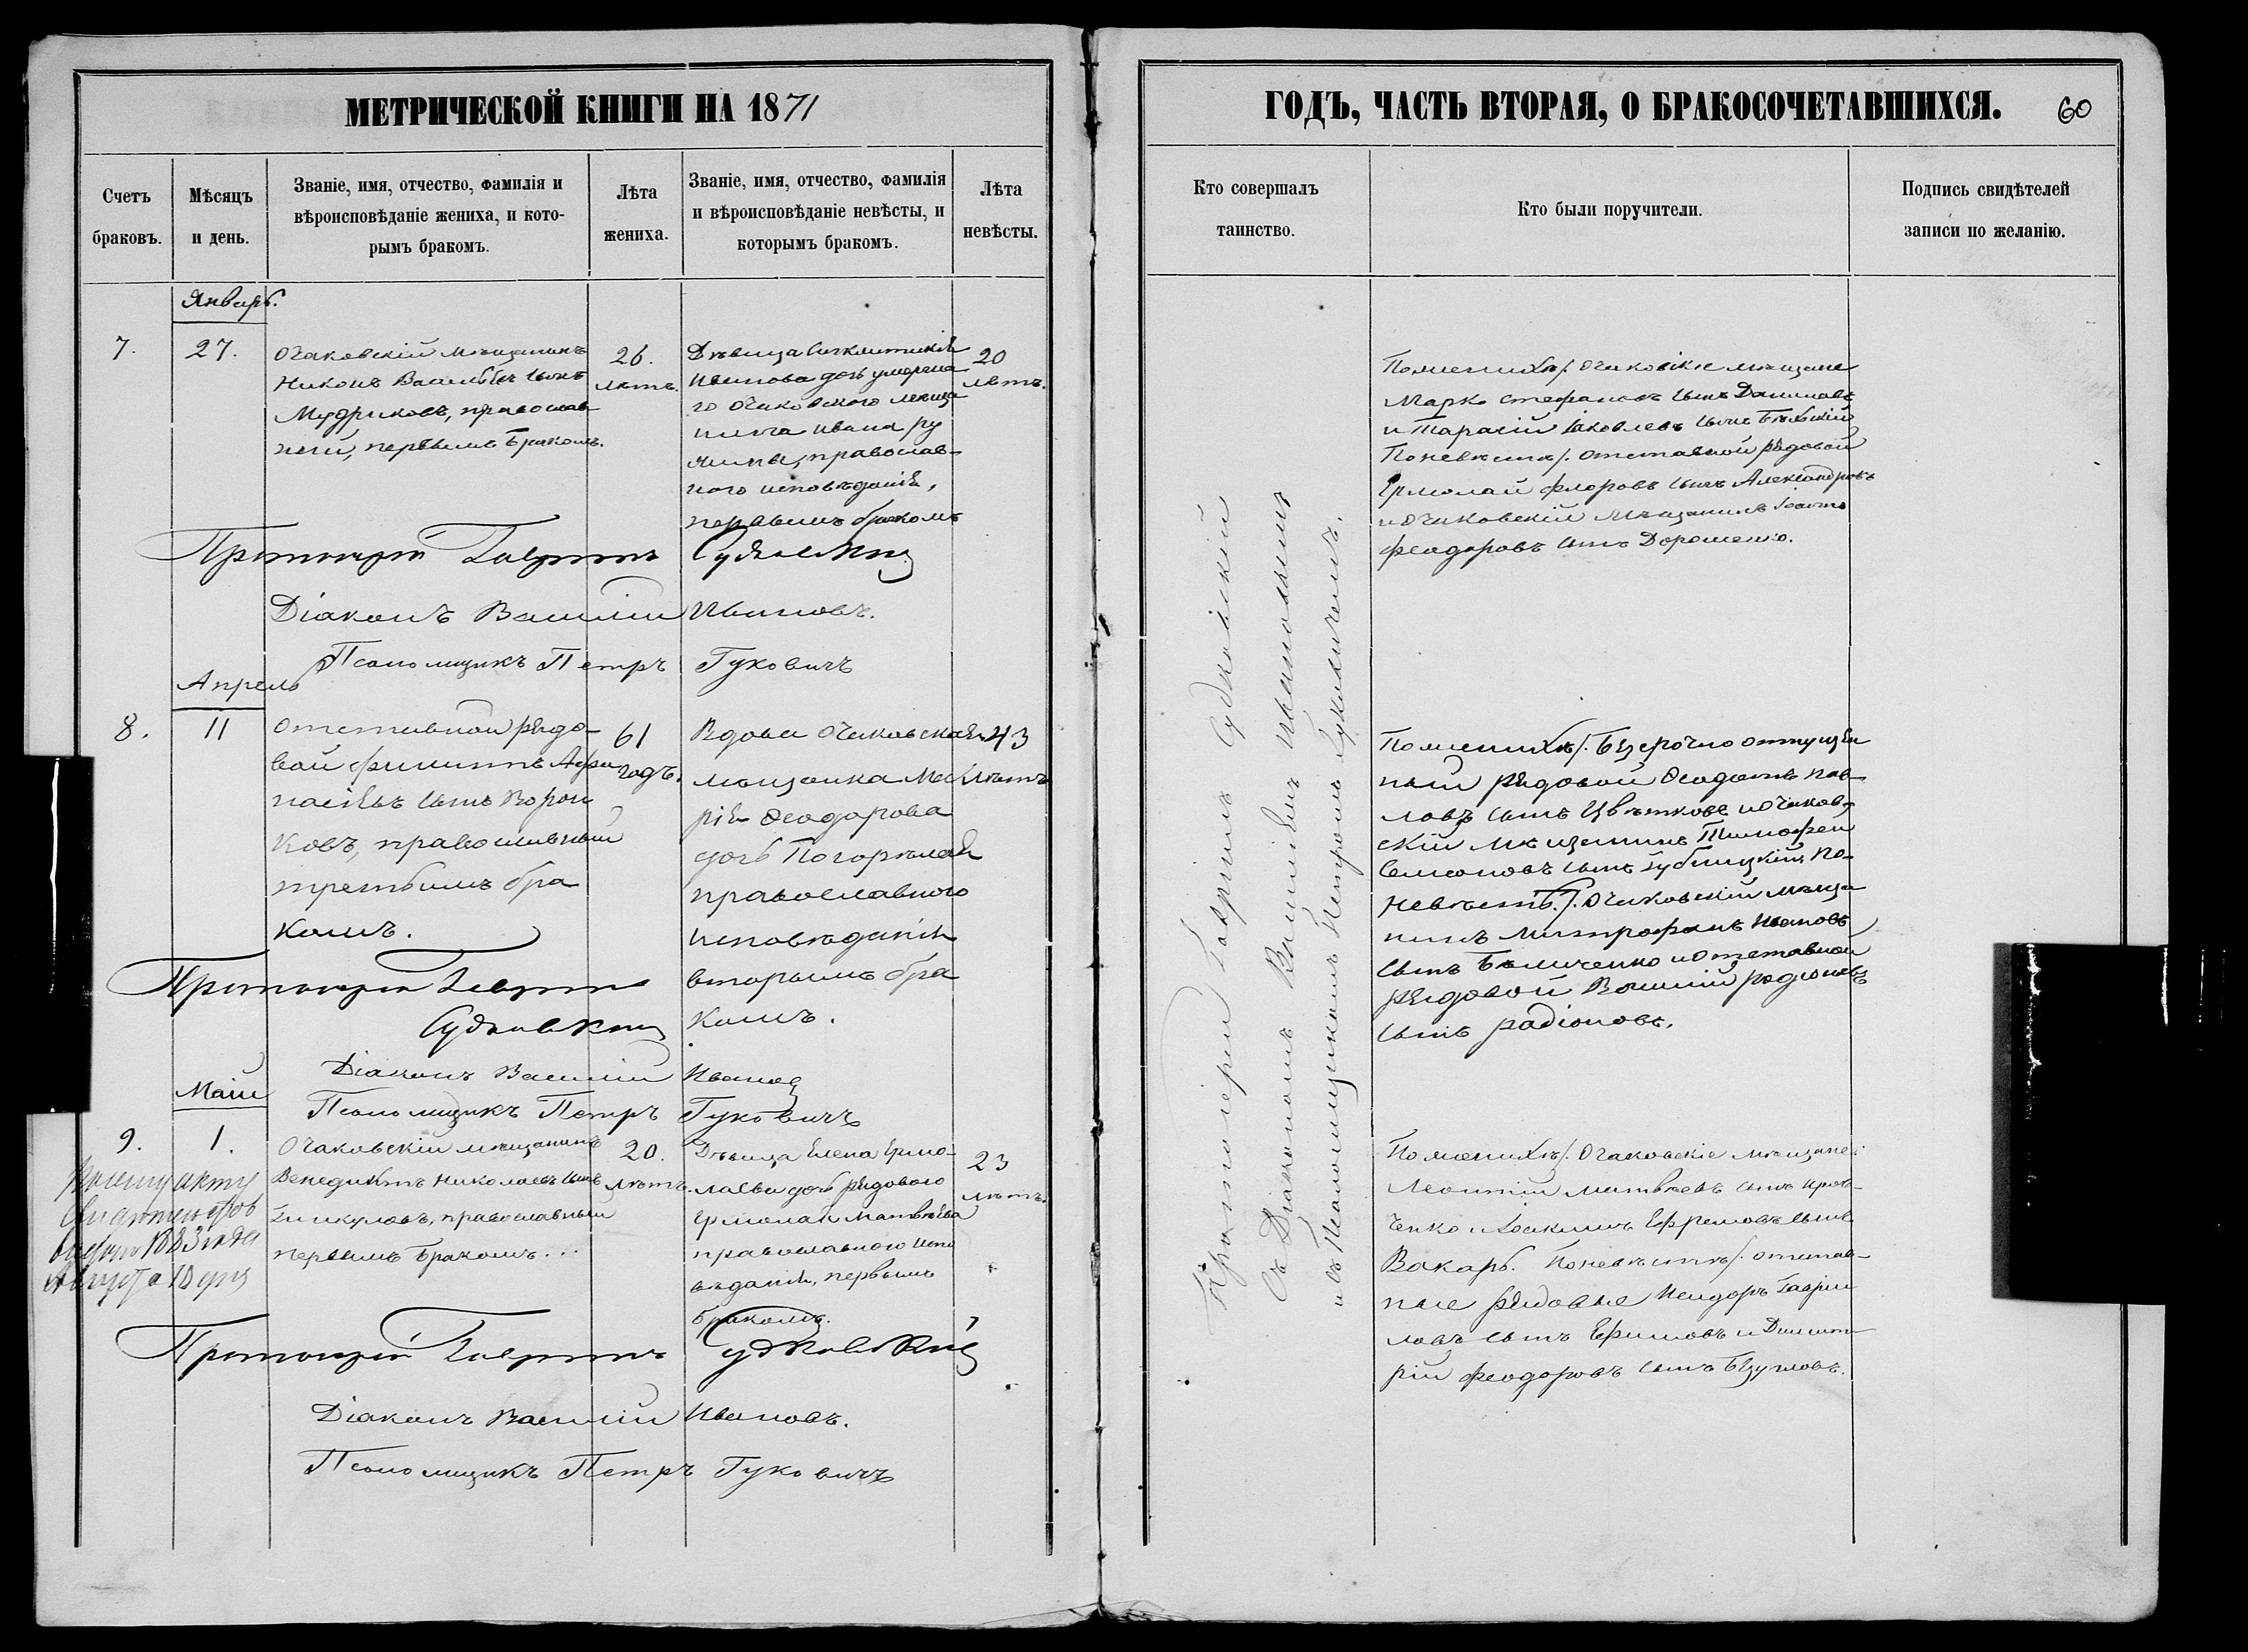 МЕТРИЧЕСКОЙ КНИГИ НА 1871
ГОДЪ, ЧАСТЬ ВТОРАЯ, О БРАКОСОЧЕТАВШИХСЯ.
60
Счетъ
браковъ.
Мѣсяцъ
и день.
Званіе, имя, отчество, фамилія и
вѣроисповѣданіе жениха, и кото-
рымъ бракомъ.
Лѣта
жениха.
Званіе, имя, отчество, фамилія
и вѣроисповѣданіе невѣсты, и
которымъ бракомъ.
Лѣта
невѣсты.
Кто совершалъ
таинство.
Кто были поручители.
Подпись свидѣтелей
записи по желанію.
Январь.
7.
27.
Очаковскій мѣщанинъ
Никонъ Васильевъ сынъ
Мудриковъ, православ-
ный, первымъ бракомъ.
26.
лѣтъ.
Дѣвица
Иванова дочь умерша
го очаковскаго мѣща
нина Ивана Ру
православ-
ного исповѣданія,
первымъ бракомъ
20
лѣтъ.
Протоіерей Гавріилъ Судковскій
Діаконъ Василій Ивановъ.
Псаломщикъ Петръ Гуковичъ
По женихѣ: Очаковскіе мѣщане
Марко Стефановъ сынъ
и Тарасій Іаковлевъ сынъ
По невѣстѣ: отставной рядовой
Ермолай Флоровъ сынъ Александровъ
и Очаковскій мѣщанинъ
Феодоровъ сынъ Дорошенко.
Апрель
8.
11
Отставной рядо-
вой Филиппъ Афа
насіевъ сынъ Ворон
ковъ, православный
третьимъ бра
комъ.
61
годъ.
Вдова Очаковская
мѣщанка Ма
рія Феодорова
дочь Погорѣлая
православного
исповѣданія
вторымъ бра
комъ.
43
лѣтъ
Протоіерей Гавріилъ
Судковскій
Діаконъ Василій Ивановъ
Псаломщикъ Петръ Гуковичъ
По женихѣ: Безсрочно отпущен
ный рядовой Феодотъ Пав-
ловъ сынъ Цвѣтковъ и Очаков-
скій мѣщанинъ Тимофей
Семеновъ сынъ По-
невѣстѣ: Очаковскій мѣща
нинъ Митрофанъ Ивановъ
сынъ Бѣличенко и отставной
рядовой Василій Родіоновъ
сынъ Радіоновъ.
Май
9.
1.
Очаковскій мѣщанинъ
Венедиктъ Николаевъ сынъ
православный
первымъ бракомъ...
20.
лѣтъ.
Дѣвица Елена Ермо-
лаева дочь рядового
Ермолая Матвѣева
православного испо
вѣданія, первымъ
бракомъ.
23
лѣтъ.
акту
1883 года
Августа
Протоіерей Гавріилъ Судковскій
Діаконъ Василій Ивановъ.
Псаломщикъ Петръ Гуковичъ
По женихѣ: Очаковскіе мѣщане:
Леонтій Матвѣевъ сынъ
и Іоакимъ Ефремовъ сынъ
Вакарь. По невѣстѣ: отстав-
ные рядовые Исидоръ Гаврии
ловъ сынъ Ефимовъ и Димит
рій Феодоровъ сынъ
Протоіерей Гавріилъ Судковскій
съ Діакономъ Василіемъ Ивановымъ
и съ Псаломщикомъ Петромъ Гуковичемъ.